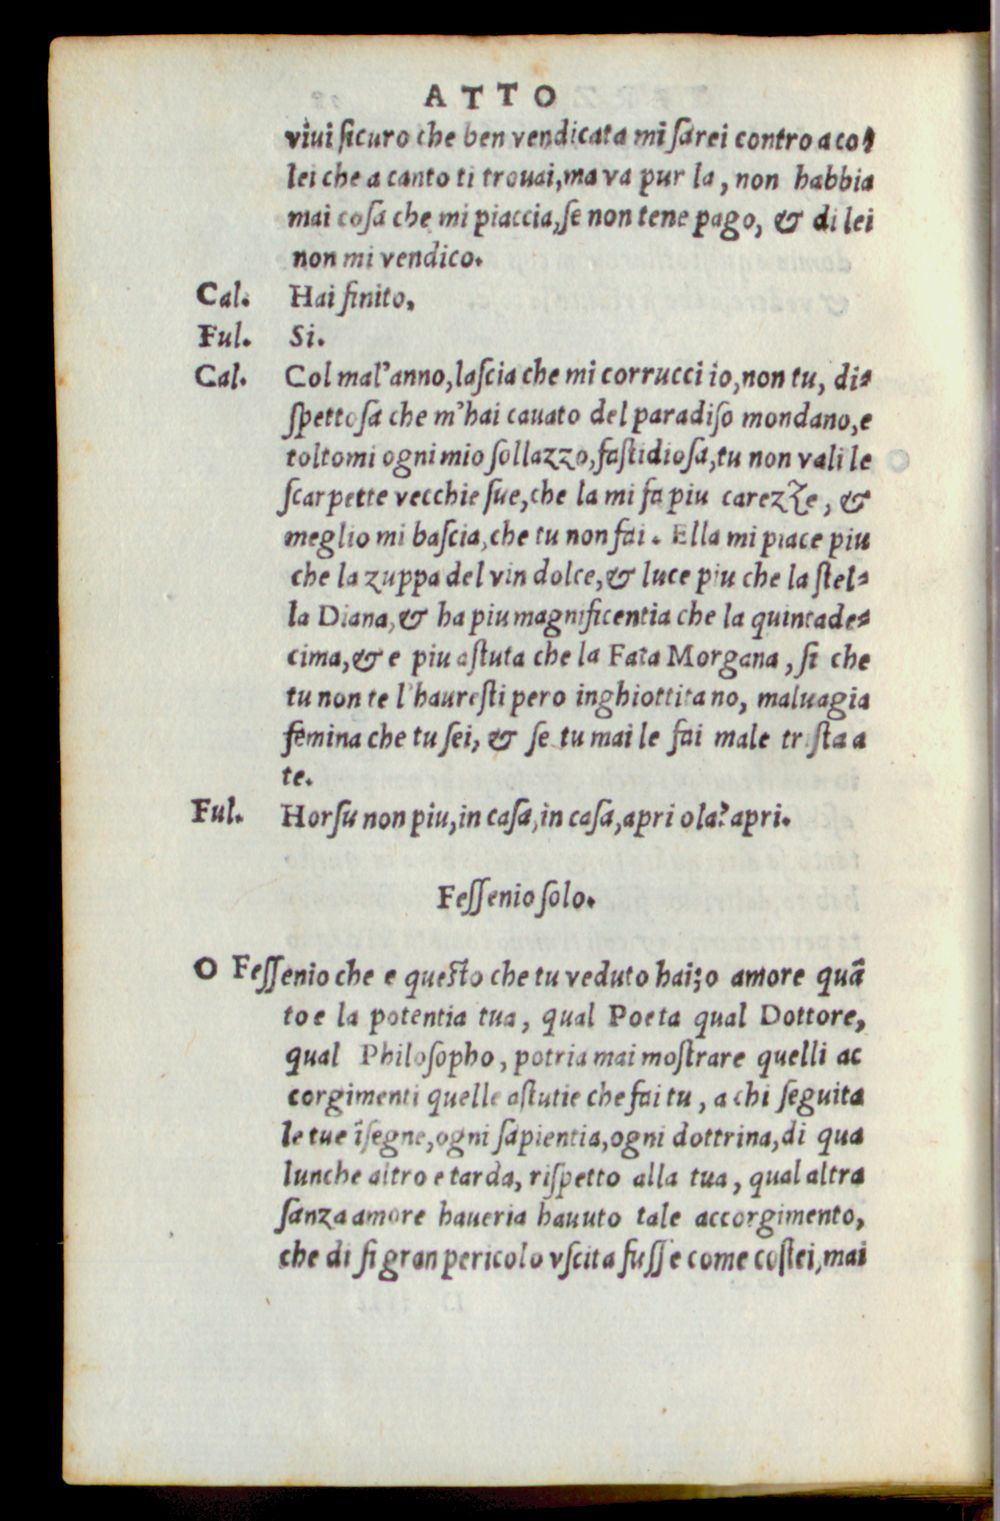 ATTO
viui ſicuro che ben vendicata mi ſarei contro a co-
lei che a canto ti trouai, ma va pur la, non habbia
mai coſa che mi piaccia, ſe non tene pago, & di lei
non mi vendico.
Cal. Hai finito,
Ful. Si.
Cal. Col mal'anno, laſcia che mi corrucci io, non tu, di-
ſpettoſa che m'hai cauato del paradiſo mondano, e
toltomi ogni mio ſollazzo, faſtidioſa, tu non vali le
ſcarpette vecchie ſue, che la mi fa piu carezze, &
meglio mi baſcia, che tu non fai. Ella mi piace piu
che la zuppa del vin dolce, & luce piu che la ſtel-
la Diana, & ha piu magnificentia che la quintade-
cima, & e piu aſtuta che la Fata Morgana, ſi che
tu non te l'haureſti pero inghiottita no, maluagia
femina che tu ſei, & ſe tu mai le fai male triſta a
te.
Ful. Horſu non piu, in caſa, in caſa, apri ola? apri.
Feſſenio ſolo.
O Feſſenio che e queſto che tu veduto hai; o amore quã
to e la potentia tua, qual Poeta qual Dottore,
qual Philoſopho, potria mai moſtrare quelli ac
corgimenti quelle aſtutie che fai tu, a chi ſeguita
le tue ĩſegne, ogni ſapientia, ogni dottrina, di qua
lunche altro e tarda, riſpetto alla tua, qual altra
ſanza amore haueria hauuto tale accorgimento,
che di ſi gran pericolo vſcita fuſſe come coſtei, mai